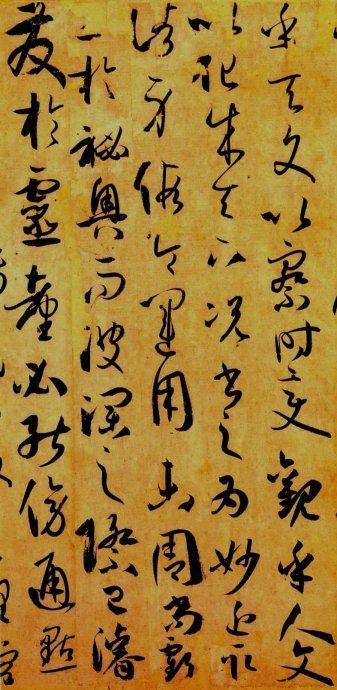 乎天文以察時變觀乎人文
以化成天下況書之為妙近取
諸身假令運用未周尚虧
工於祕奧而波瀾之際已濬
發於靈臺必能傍通點